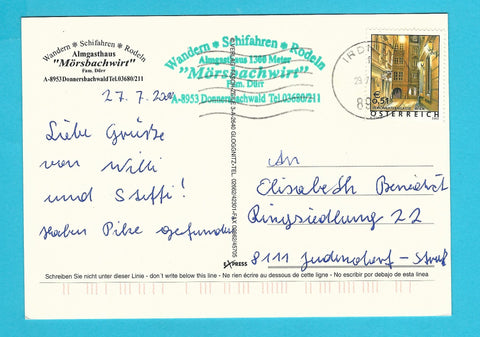 Wandern * Schifahren * Rodeln
Almgasthaus
"Mörsbachwirt"
Fam. Dürr
A-8953 Donnersbachwald Tel.03680/211
27.7.2004
Liebe Grüße
von Willi
und Steffi!
Haben Pilze gefunden
Wandern * Schifahren * Rodeln
Almgasthaus 1300 Meter
"Mörsbachwirt"
Fam. Dürr
A-8953 Donnersbachwald Tel.03680/211
€ 0,51
ÖSTERREICH
An
Elisabeth Benedikt
Ringsiedlung 22
8111 Judendorf-Straß
EXPRESS
Schreiben Sie nicht unter dieser Linie - don't write below this line - Ne rien écrire au dessous de cette ligne - No escribir por debajo de esta linea